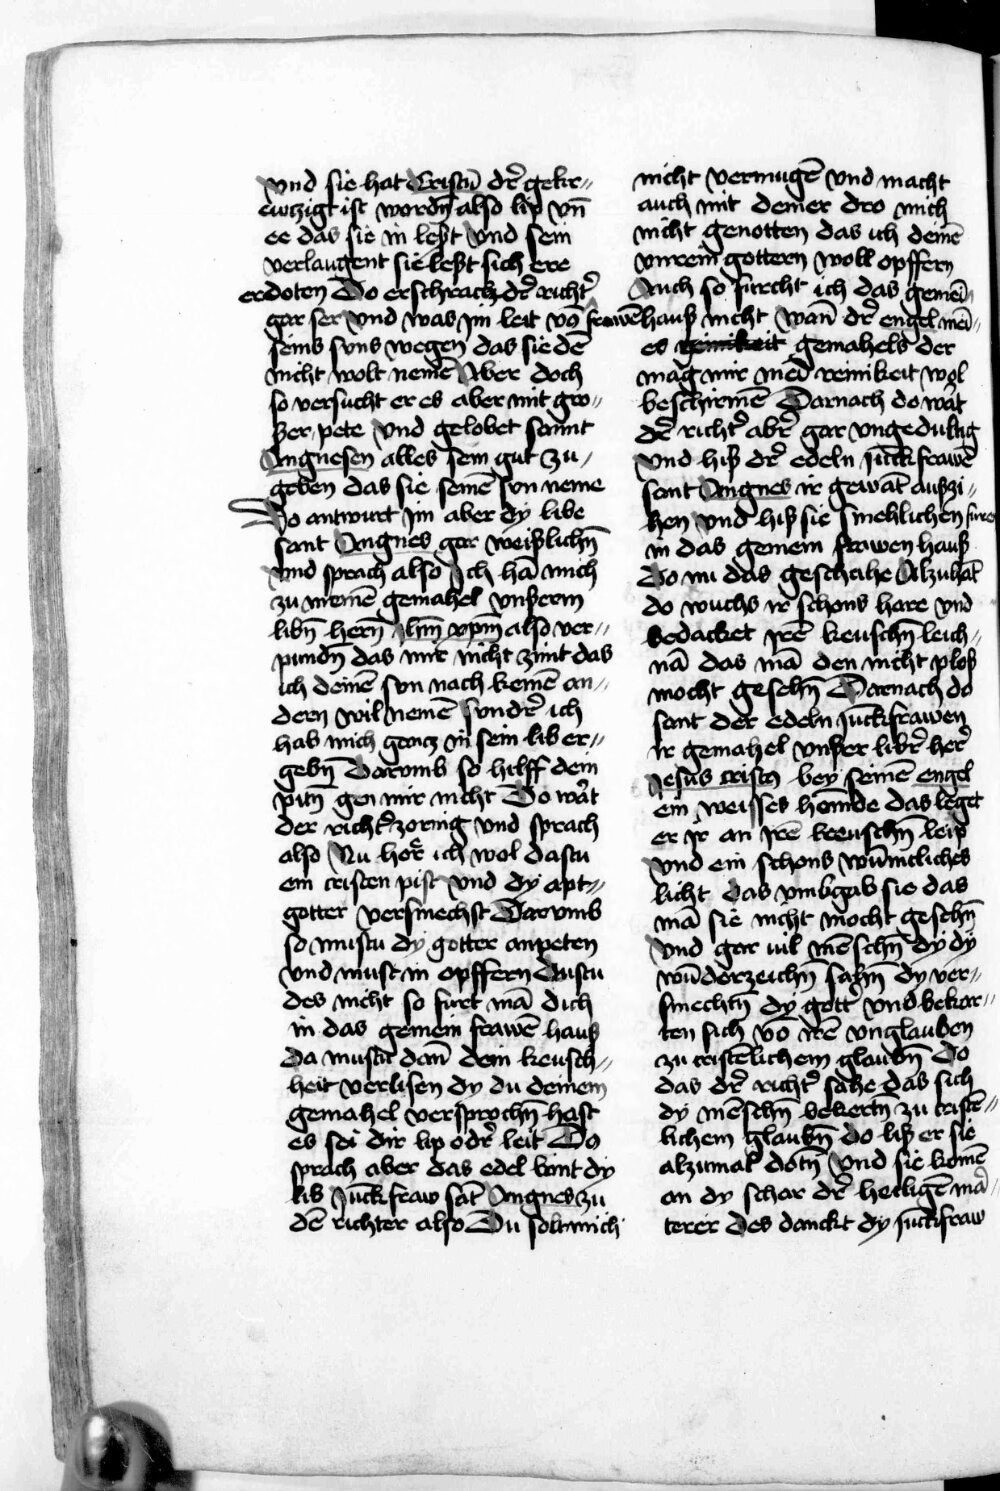 vnd sie hat Cristū dr̄ gekr〃
ewczigt ist wordn̄ also lip vn̄
ee das sie in leßt Vnd sein
verlaugent sie leßt sich ere
erdoten Do erschrack dr̄ richtr̄
gar ser Vnd was im leit vō
seins suns wegen das sie dē
nicht wolt nemē Aber doch
so versucht er es aber mit gro〃
ßer pete Vnd gelobet sannt
Angnesen alles sein gut zu〃
geben das sie seinē sun neme
Do antwurt im aber dy libe
sant Angnes gar weißlichn̄
Vnd sprach also Ich hā mich
zu meinē gemahel vnßerm
libn̄ hern̄ ihm̄ xp̄m also ver〃
pundn̄ das mir nicht zimt das
ich deinē sun nach keinē an〃
dern wil nemē sundr̄ ich
hab mich gancz in sein lib er〃
gebn̄ Darvmb so hilff dein
pitn̄ gen mir nicht Do wart
der richtr̄ zornig Vnd sprach
also Nu hör ich wol dastu
ein cristen pist Vnd dy apt〃
gotter versmechst Darvmb
so mustu dy gotter anpeten
Vnd must in opffern Dustu
des nicht so furt mā dich
in das gemein frawē hauß
Da mustu dan̄ dein keusch〃
heit verlisen dy du deinem
gemahel versprochn̄ hast
es sei dir lip odr̄ leit Do
sprach aber das edel kint dy
lib Junckfraw sāt Angnes zu
dē richter also Du solt mich
nicht vermugē Vnd macht
auch mit deiner dro mich
nicht genotten das ich deinē
vnrein gottern woll opffern
Auch so furcht ich das gemēi〃
frawē hauß nicht Wan̄ dr̄ engel mēi〃
es gemahels der
mag mir mēi reinikeit wol
beschirmē Darnach do wart
dr̄ richtr̄ abr̄ gar vngedultig
Vnd hiß dr̄ edeln Junckfrawē
sant Angnes ir gewāt außzi〃
hen Vnd hiß sie smehlichen furen
in das gemein frawen hauß
Do nu das geschahe Alzuhāt
do wuchs ir schons hare vnd
bedacket irē keuschn̄ leich〃
nā das mā den nicht ploß
mocht gesehn̄ Darnach do
sant der edeln Junckfrawen
ir gemahel vnßer libr̄ her̄
Jesus cristn̄ bey seinē engel
ein weisses hemde das leget
er ir an irē keuschn̄ leip
Vnd ein schons wunnicliches
licht Das vmbgab sie das
mā sie nicht mocht gesehn̄
Vnd gar vil mēschn̄ dy dy
wūderzeichn̄ sahn̄ dy ver〃
smechtn̄ dy gottr̄ Vnd bekar〃
ten sich vō irē vnglauben
zu cristēlichem glaubn̄ Do
das dr̄ richtr̄ sahe das sich
dy mēschn̄ bekertn̄ zu cristē〃
lichem glaubn̄ do liß er sie
alzumal dotn̄ Vnd sie komē
an dy schar dr̄ heiligē mā〃
terer Des danckt dy Junckfraw